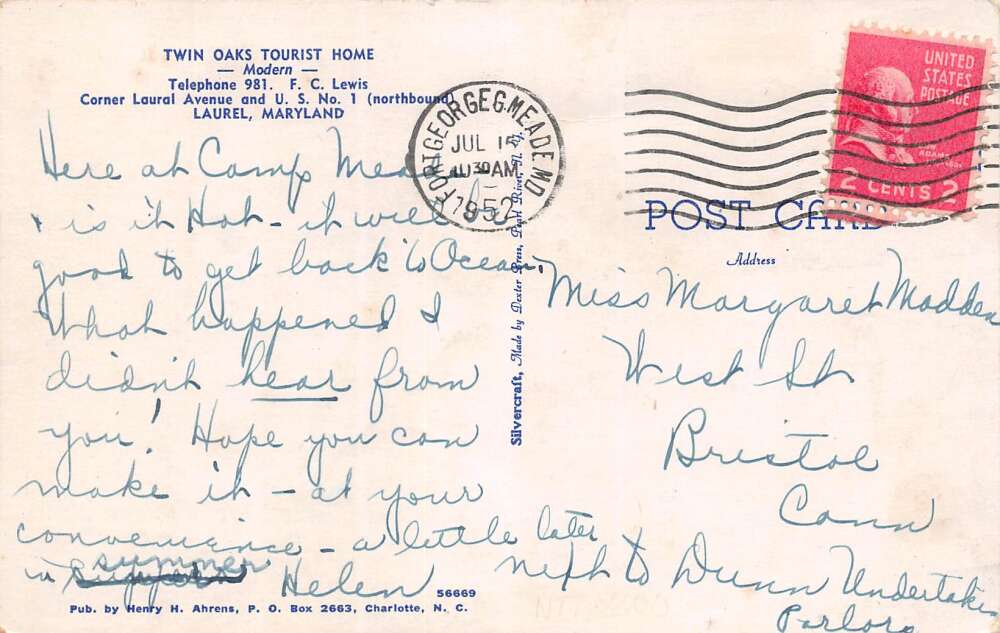 TWIN OAKS TOURIST HOME
— Modern —
Telephone 981. F. C. Lewis
Corner Laural Avenue and U. S. No. 1 (northbound)
LAUREL, MARYLAND
Here at Camp Meade
is it Hot - it will be
good to get back to Ocean.
What happened I
didn't hear from
you! Hope you can
make it - at your
convenience - a little later
in summer Helen
56669
Pub. by Henry H. Ahrens, P. O. Box 2663, Charlotte, N. C.
Silvercraft, Made by Dexter Press, Pearl River, N. Y.
FORT GEORGE G. MEADE. MD
JUL
10 30 AM
1952
UNITED
STATES
POSTAGE
JOHN ADAMS
2 CENTS 2
POST CARD
Address
Miss Margaret Madden
West St
Bristol
Conn
next to Dunn Undertaking
Parlors